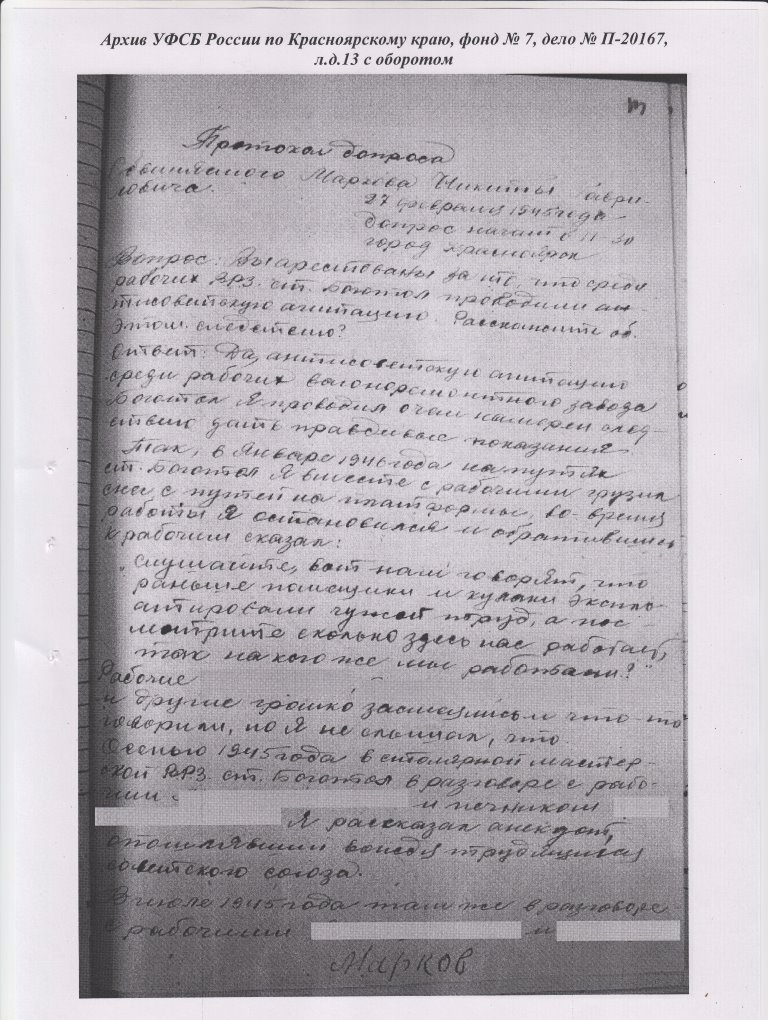 Архив УФСБ России по Красноярскому краю, фонд № 7, дело № П-20167,
л.д.13 с оборотом
Протокол допроса
Обвиняемого Маркова Никиты Гаври-
ловича.
27 февраля 1946 года
Допрос начат в 11-30
город Красноярск
Вопрос: Вы арестованы за то, что среди
рабочих ВРЗ. ст. Боготол проводили ан-
тисоветскую агитацию. Расскажите об
этом следствию?
Ответ: Да, антисоветскую агитацию
среди рабочих вагоноремонтного завода
Боготол Я проводил о чем намерен след-
ствию дать правдивые показания
Так, в Январе 1946 года на путях
ст. Боготол Я вместе с рабочими грузил
снег с путей на платформы, во-время
работы Я остановился и обратившись
к рабочим сказал:
"Слушайте, вот нам говорят, что
раньше помещики и кулаки эксплу-
атировали чужой труд, а пос-
мотрите сколько здесь нас работает,
так на кого же мы работаем?"
Рабочие
и другие громко засмеялись и что-то
говорили, но Я не слышал, что.
Осенью 1945 года в столярной мастер-
ской ВРЗ. ст. Боготол в разговоре с рабо-
чими
и печником
Я рассказал анекдот,
опошлявший вождя трудящихся
советского союза.
В июле 1945 года там же в разговоре
с рабочими и
Марков